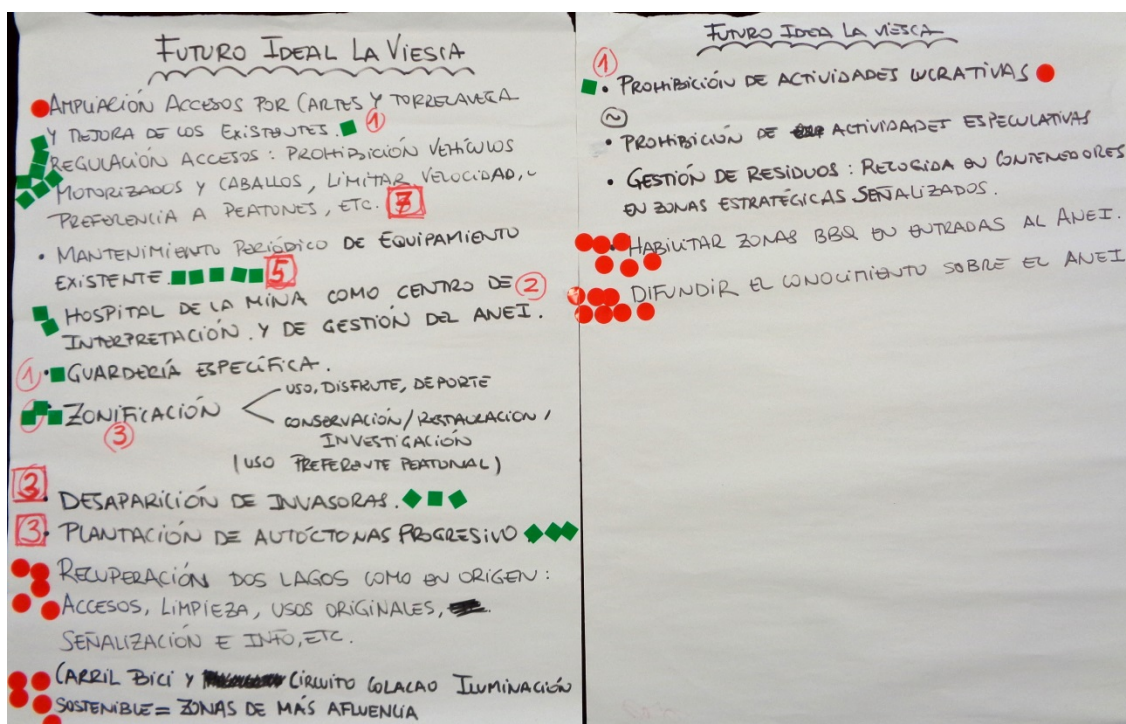 FUTURO IDEAL LA VIESCA
AMPLIACIÓN ACCESOS POR CARTES Y TORRELAVEGA
Y MEJORA DE LOS EXISTENTES. 1
REGULACIÓN ACCESOS: PROHIBICIÓN VEHÍCULOS
MOTORIZADOS Y CABALLOS, LIMITAR VELOCIDAD,
PREFERENCIA A PEATONES, ETC. 7
• MANTENIMIENTO PERIÓDICO DE EQUIPAMIENTO
EXISTENTE. 5
HOSPITAL DE LA MINA COMO CENTRO DE 2
INTERPRETACIÓN Y DE GESTIÓN DEL ANEI.
1 • GUARDERÍA ESPECÍFICA.
ZONIFICACIÓN
3
USO, DISFRUTE, DEPORTE
CONSERVACIÓN/RESTAURACIÓN/
INVESTIGACIÓN
(USO PREFERENTE PEATONAL)
3 • DESAPARICIÓN DE INVASORAS.
3 • PLANTACIÓN DE AUTÓCTONAS PROGRESIVO
RECUPERACIÓN DOS LAGOS COMO EN ORIGEN:
ACCESOS, LIMPIEZA, USOS ORIGINALES,
SEÑALIZACIÓN E INFO, ETC.
CARRIL BICI Y CIRCUITO COLACAO ILUMINACIÓN
SOSTENIBLE = ZONAS DE MÁS AFLUENCIA
FUTURO IDEA LA VIESCA
1
• PROHIBICIÓN DE ACTIVIDADES LUCRATIVAS
~
• PROHIBICIÓN DE ACTIVIDADES ESPECULATIVAS
• GESTIÓN DE RESIDUOS: RECOGIDA EN CONTENEDORES
EN ZONAS ESTRATÉGICAS SEÑALIZADOS.
• HABILITAR ZONAS BBQ EN ENTRADAS AL ANEI.
DIFUNDIR EL CONOCIMIENTO SOBRE EL ANEI